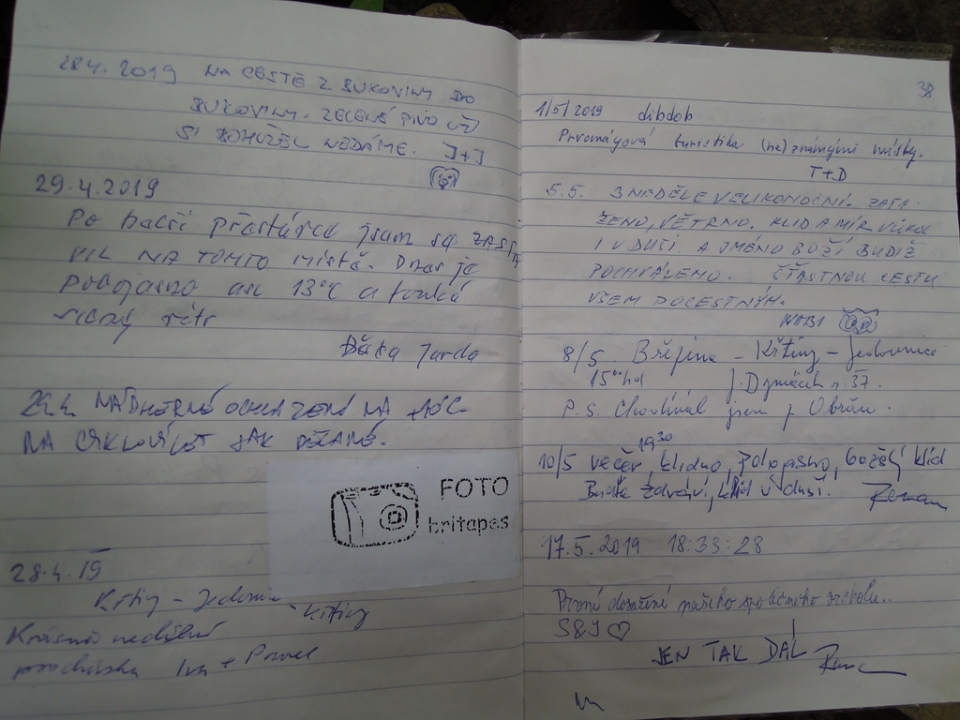 28.4. 2019 NA CESTĚ Z BUKOVINY DO
BUKOVINY. ZELENÉ PIVO UŽ
SI BOHUŽEL NEDÁME. J+J
29.4.2019
Po delší přestávce jsem se ZASTA
VIL NA TOMTO místě. Dnes je
polojasno asi 13°C a fouká
vítr
Jarda
NA
JAK
FOTO
britapes
28.4.19
Křtiny - Jedovnice - Křtiny
Krásná nedělní
procházka Iva + Pavel
38
1/5/2019 dibdob
Prvomájová turistika (ne)známými místy.
T+D
5.5. 3 NEDĚLE VELIKONOČNÍ. ZATA-
ŽENO, VĚTRNO. KLID A MÍR VŮKOL
I V DUŠI A JMÉNO BOŽÍ BUDIŽ
POCHVÁLENO. ŠŤASTNOU CESTU
VŠEM POCESTNÝM.
8/5. Březina - Křtiny - Jedovnice
15⁰⁰hd J. 37.
P.S. jsem z Obřan.
19³⁰
10/5 večer, klidno, polojasno, božský klid
Buďte zdrávi, klid v duši. Roman
17.5.2019 18:33:28
První dosažení našeho společného vrcholu..
S&J ♡
JEN TAK DÁL!